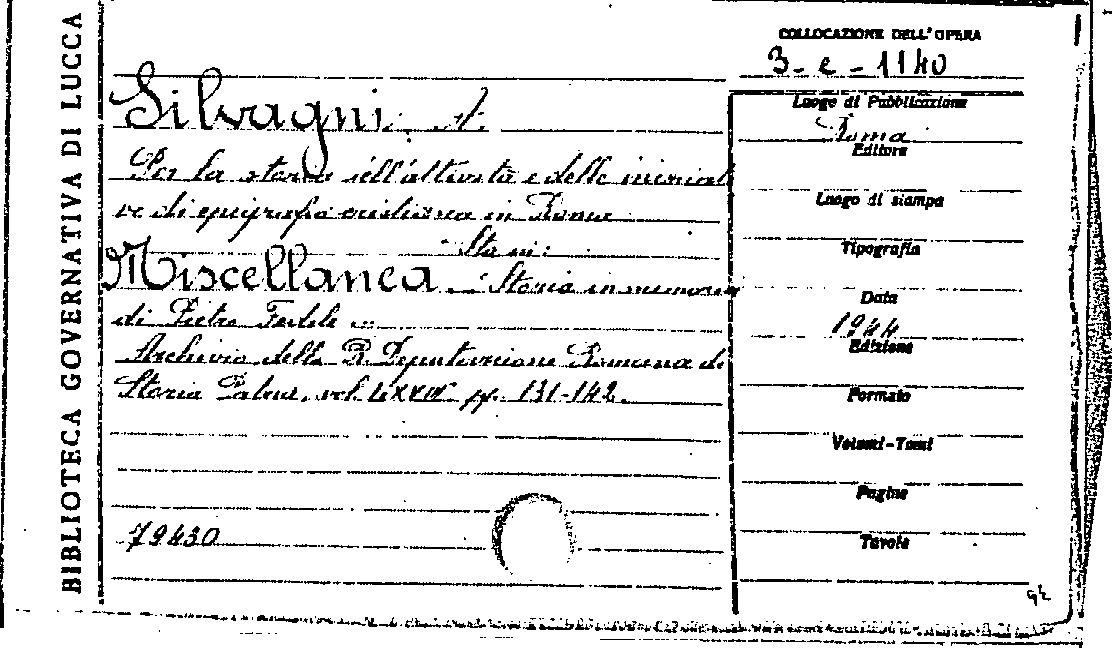 BIBLIOTECA GOVERNATIVA DI LUCCA
COLLOCAZIONE DELL'OPERA
3-e-1140
Silvagni A.
Per la storia dell'attività e delle iniziati
ve di epigrafia cristiana in Roma
Sta in:
Miscellanea Storia in memoria
di Pietro Fedele
Archivio della R. Deputazione Romana di
Storia Patria, vol. LXVII pp. 131-142.
79430
Luogo di Pubblicazione
Roma
Editore
Luogo di stampa
Tipografia
Data
1944
Edizione
Formato
Volumi-Tomi
Pagine
Tavole